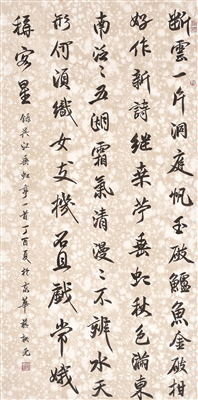 斷雲一片洞庭帆玉破鱸魚金破柑
好作新詩继桑苧垂虹秋色滿東
南泛〻五湖霜氣清漫〻不辨水天
形何須織女支機石且戲常娥
稱客星 錄吴江垂虹亭一首丁酉夏於京華